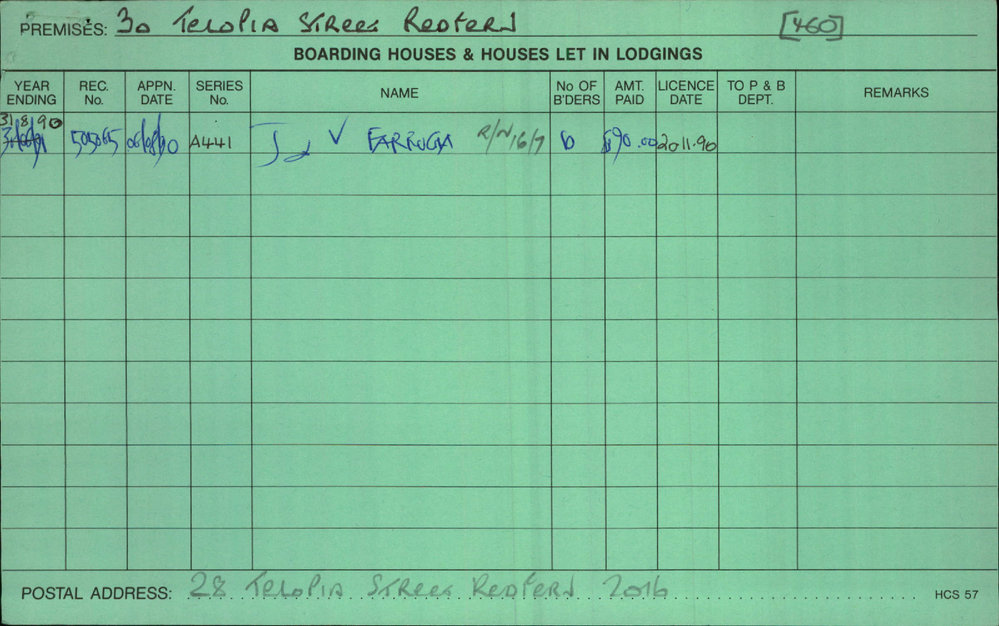 PREMISES: 30 TELOPIA STREET REDFERN [460]
BOARDING HOUSES & HOUSES LET IN LODGINGS
YEAR ENDING REC. No. APPN. DATE SERIES No. NAME No OF B'DERS AMT. PAID LICENCE DATE TO P & B DEPT. REMARKS
31.8.90
505065 06/08/90 A441 J V FARRUGIA R/N 16/7 $90.00 20.11.90
POSTAL ADDRESS: 28 TELOPIA STREET REDFERN 2016 HCS 57